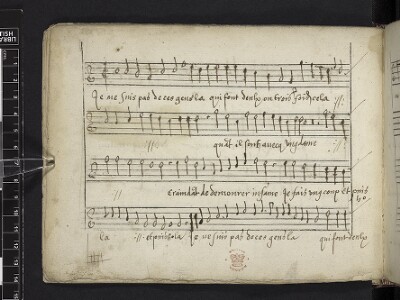 Je ne suis pas de ces gens la qui font deulx ou trois cela :||:
quāt il sont avecq
Craindāt de demourer infame Je fais ung coup et puis
la :||: et puis la Je ne suis pas de ces gens la qui font deulx